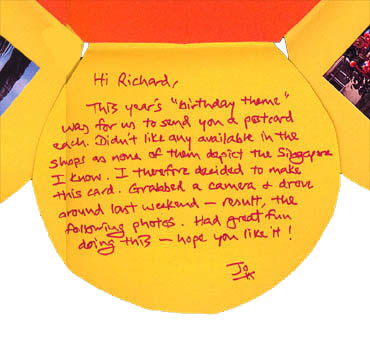 Hi Richard,
This year's "birthday theme"
was for us to send you a postcard
each. Didn't like any available in the
shops as none of them depict the Singapore
I know. I therefore decided to make
this card. Grabbed a camera & drove
around last weekend – result, the
following photos. Had great fun
doing this – hope you like it!
Jo